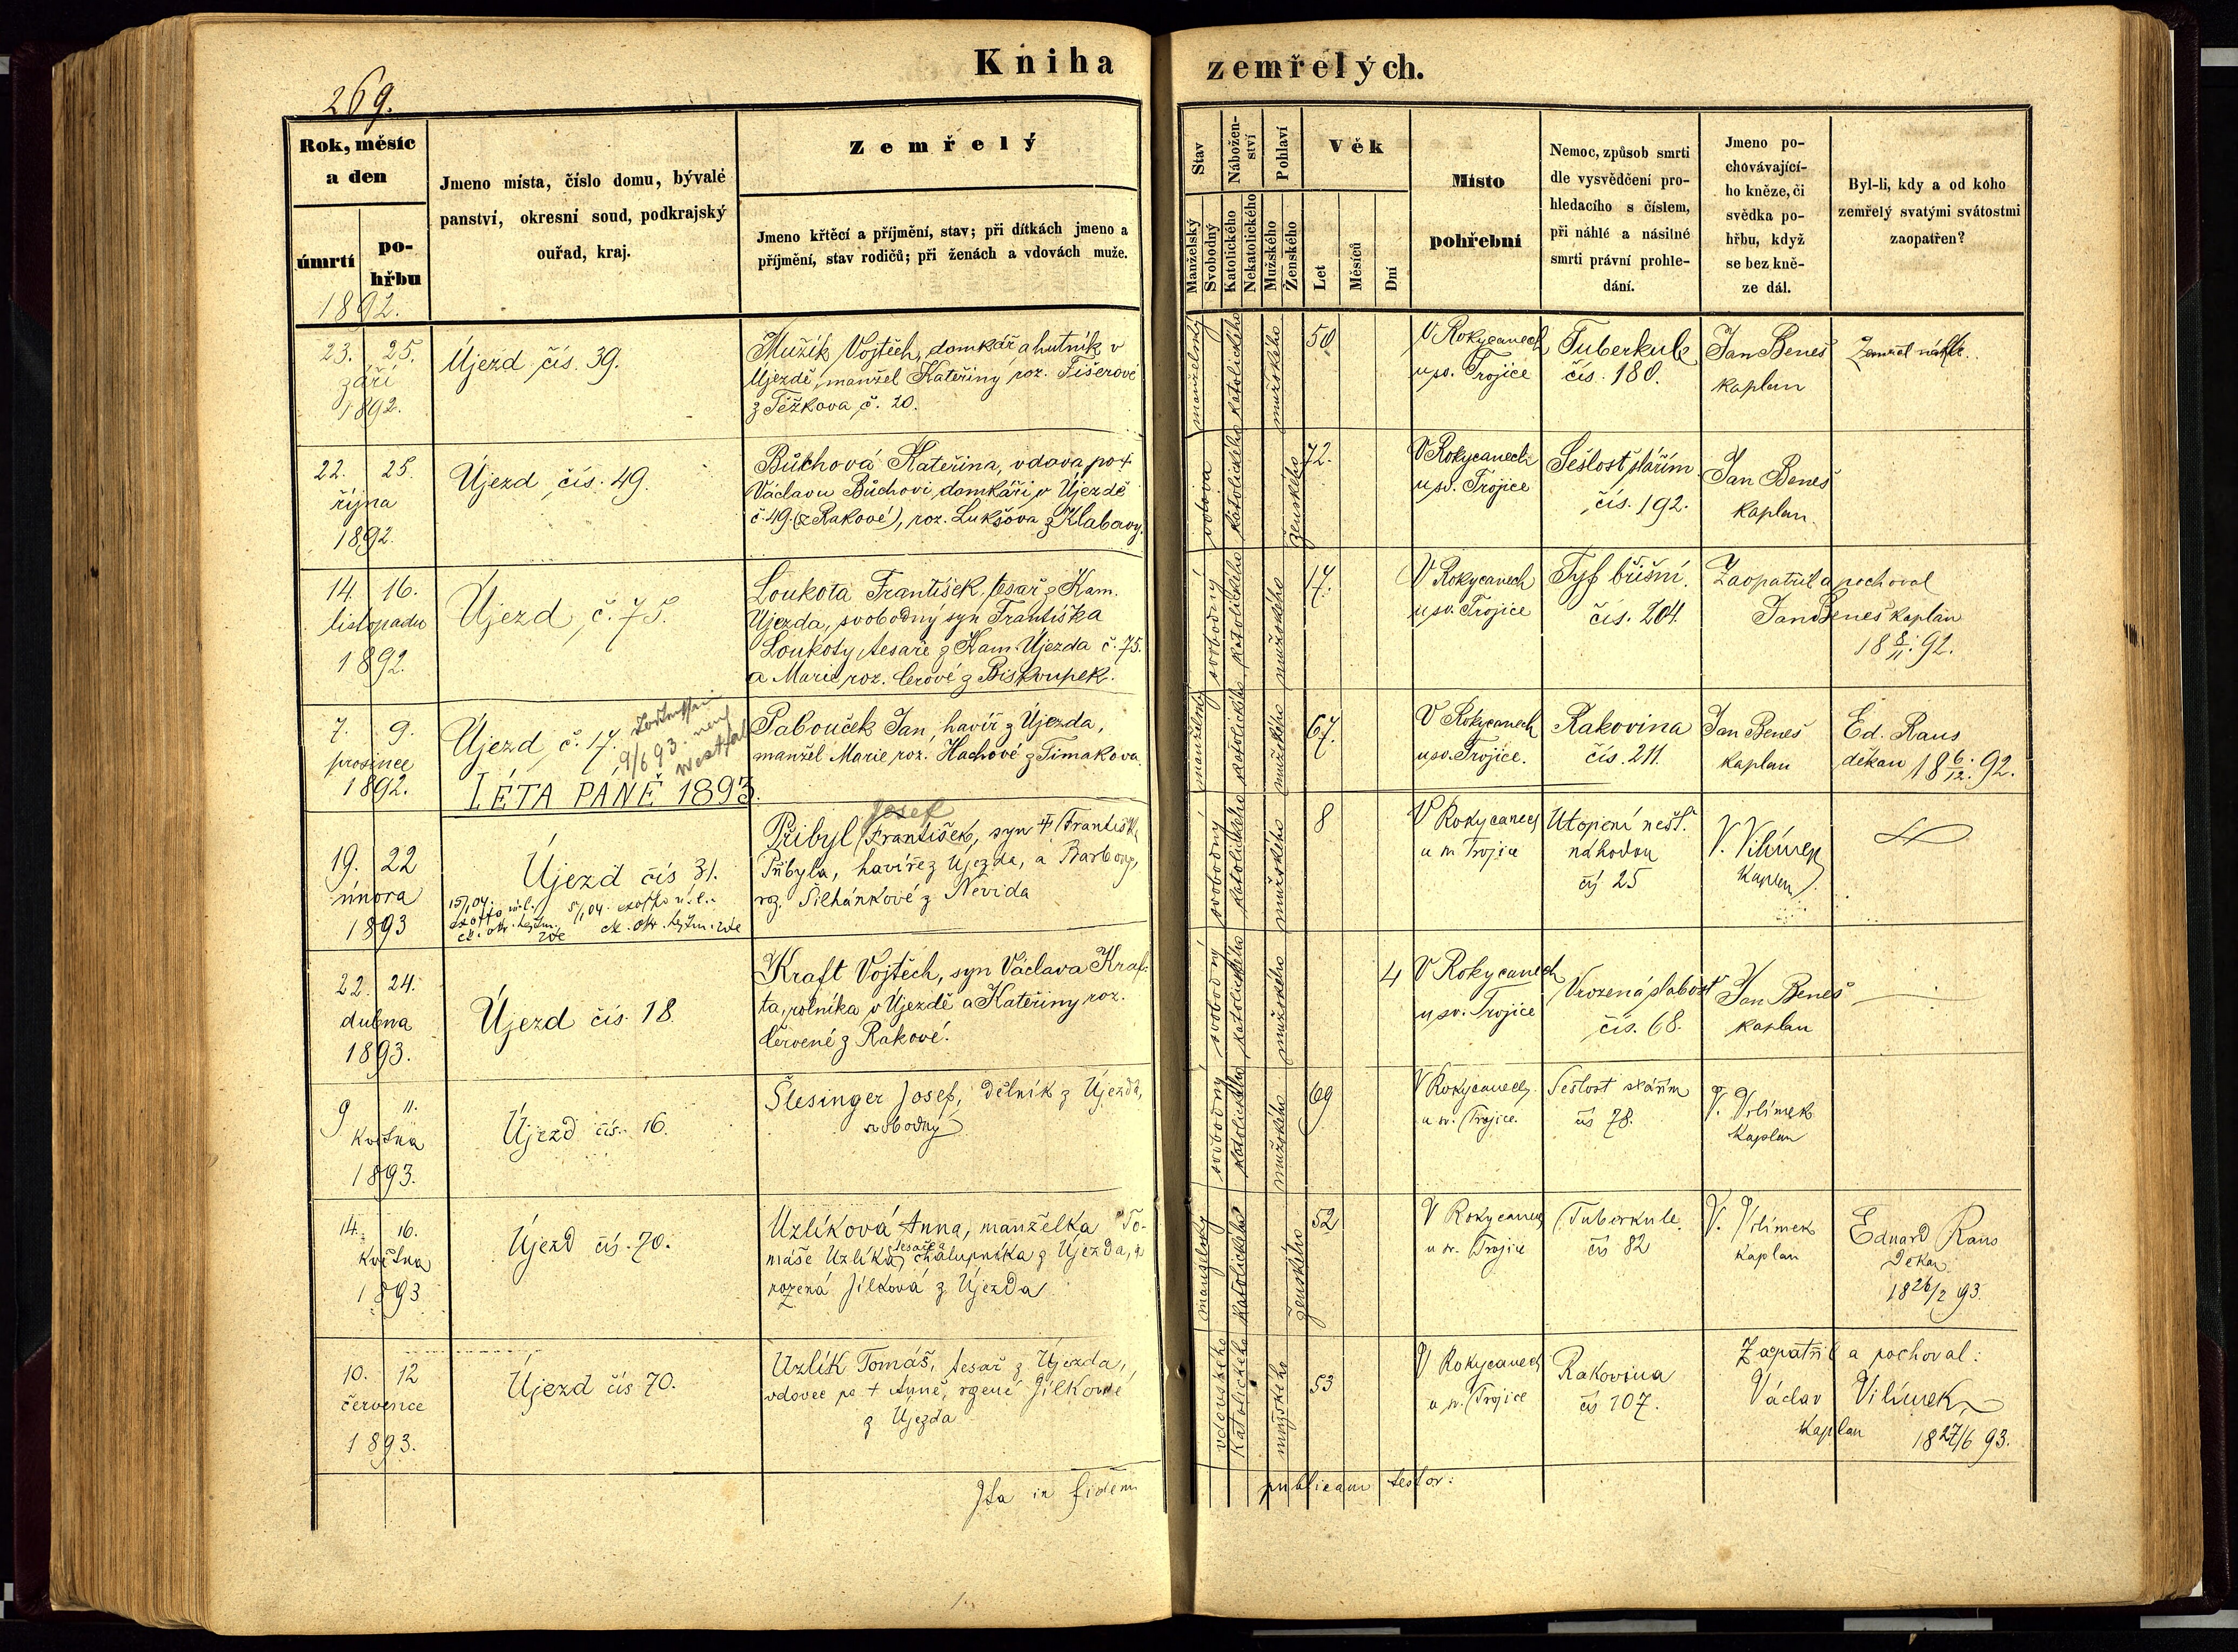 Kniha zemřelých.
269.
Rok, měsíc a den
úmrtí
pohřbu
1892.
Jmeno místa, číslo domu, bývalé
panství, okresní soud, podkrajský
ouřad, kraj.
Zemřelý
Jmeno křtěcí a příjmění, stav; při dítkách jmeno a
příjmění, stav rodičů; při ženách a vdovách muže.
Stav
Manželský
Svobodný
Náboženství
Katolického
Nekatolického
Pohlaví
Mužského
Ženského
Věk
Let
Měsíců
Dní
Místo
pohřební
Nemoc, způsob smrti
dle vysvědčení pro-
hledacího s číslem,
při náhlé a násilné
smrti právní prohle-
dání.
Jmeno po-
chovávající-
ho kněze, či
svědka po-
hřbu, když
se bez kně-
ze dál.
Byl-li, kdy a od koho
zemřelý svatými svátostmi
zaopatřen?
23. 25.
září
1892.
Újezd čís. 39.
Mužík Vojtěch, domkář a hutník v
Újezdě, manžel Kateřiny roz. Fišerové
z Těžkova č. 20.
manželský
katolického
mužského
50
V Rokycanech
u sv. Trojice
Tuberkule
čís. 180.
Jan Beneš
kaplan
Zemřel náhle.
22. 25.
října
1892.
Újezd čís. 49.
Bůchová Kateřina, vdova po +
Václavu Bůchovi, domkáři v Újezdě
č. 49. (z Rakové), roz. Lukšova z Klabavy.
vdova
katolického
ženského
72.
V Rokycanech
u sv. Trojice
Sešlost stářím
čís. 192.
Jan Beneš
kaplan
14. 16.
listopadu
1892.
Újezd č. 75.
Loukota František, tesař z Kam.
Újezda, svobodný syn Františka
Loukoty, tesaře z Kam. Újezda č. 75.
a Marie roz. Cerové z Biskoupek.
svobodný
katolického
mužského
17.
V Rokycanech
u sv. Trojice
Tyf břišní.
čís. 204.
Zaopatřil a pochoval
Jan Beneš kaplan
18 8/11. 92.
7. 9.
prosince
1892.
Újezd č. 17.
9/6 93.
Westfal
Pabouček Jan, havíř z Újezda,
manžel Marie roz. Hachové z Timakova.
manželský
katolického
mužského
67.
V Rokycanech
u sv. Trojice.
Rakovina
čís. 211.
Jan Beneš
kaplan
Ed. Raus
děkan 18 6/12. 92.
LÉTA PÁNĚ 1893.
19. 22
února
1893
Újezd čís 31.
15/1 04.
5/1 04.
Josef
Přibyl František, syn + Františka
Přibyla, havíře z Újezda, a Barbory,
roz. Šilhánkové z Nevida
svobodný
katolického
mužského
8
V Rokycanech
u sv. Trojice
Utopení nešť.
náhodou
čís 25
V. Vilímek
Kaplan
22. 24.
dubna
1893.
Újezd čís. 18.
Kraft Vojtěch, syn Václava Kraf-
ta, rolníka v Újezdě a Kateřiny roz.
Červené z Rakové.
svobodný
katolického
mužského
4
V Rokycanech
u sv. Trojice
Vrozená slabost
čís. 68.
Jan Beneš
kaplan
9 11.
května
1893.
Újezd čís. 16.
Šlesinger Josef, dělník z Újezda,
svobodný
svobodný
katolického
mužského
69
V Rokycanech
u sv. Trojice.
Sešlost stářím
čís 78.
V. Vilímek
Kaplan
14. 16.
května
1893
Újezd čís. 70.
Uzlíková Anna, manželka To-
máše Uzlíka, tesaře a chalupníka z Újezda,
rozená Jílková z Újezda
manželský
katolického
ženského
52
V Rokycanech
u sv. Trojice
Tuberkule.
čís 82
V. Vilímek
kaplan
Eduard Raus
Děkan
18 26/2 93.
10. 12
července
1893.
Újezd čís 70.
Uzlík Tomáš, tesař z Újezda,
vdovec po + Anně, rozené Jílkové
z Újezda
vdovského
Katolického
mužského
53
V Rokycanech
u sv. Trojice
Rakovina
čís 107.
Zaopatřil a pochoval:
Václav Vilímek
kaplan 18 27/6 93.
Ita in fidem publicam testor: